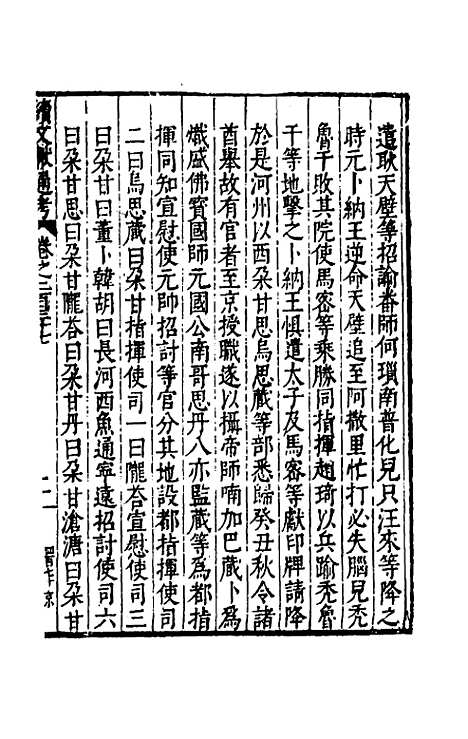 遣耿天壁等招諭畨師何瑣南普化兒只汪來等降之
時元卜納王逆命天壁追至阿撒里忙打必失腦兒禿
魯干敗其院使馬宻等乘勝同指揮趙琦以兵踰禿魯
干等地擊之卜納王惧遣太子及馬宻等獻印牌請降
於是河州以西朶甘思烏思蔵等部悉歸癸丑秋令諸
酋舉故有官者至京授職遂以攝帝師喃加巴蔵卜爲
熾盛佛寳國師元國公南哥思丹八亦監蔵等爲都指
揮同知宣慰使元帥招討等官分其地設都指揮使司
二曰烏思蔵曰朶甘指揮使司一曰隴荅宣慰使司三
曰朶甘曰董卜韓胡曰長河西魚通寧遠招討使司六
曰朶甘思曰朶甘隴荅曰朶甘丹曰朶甘滄溏曰朶甘
續文獻通考 卷之二百三十七